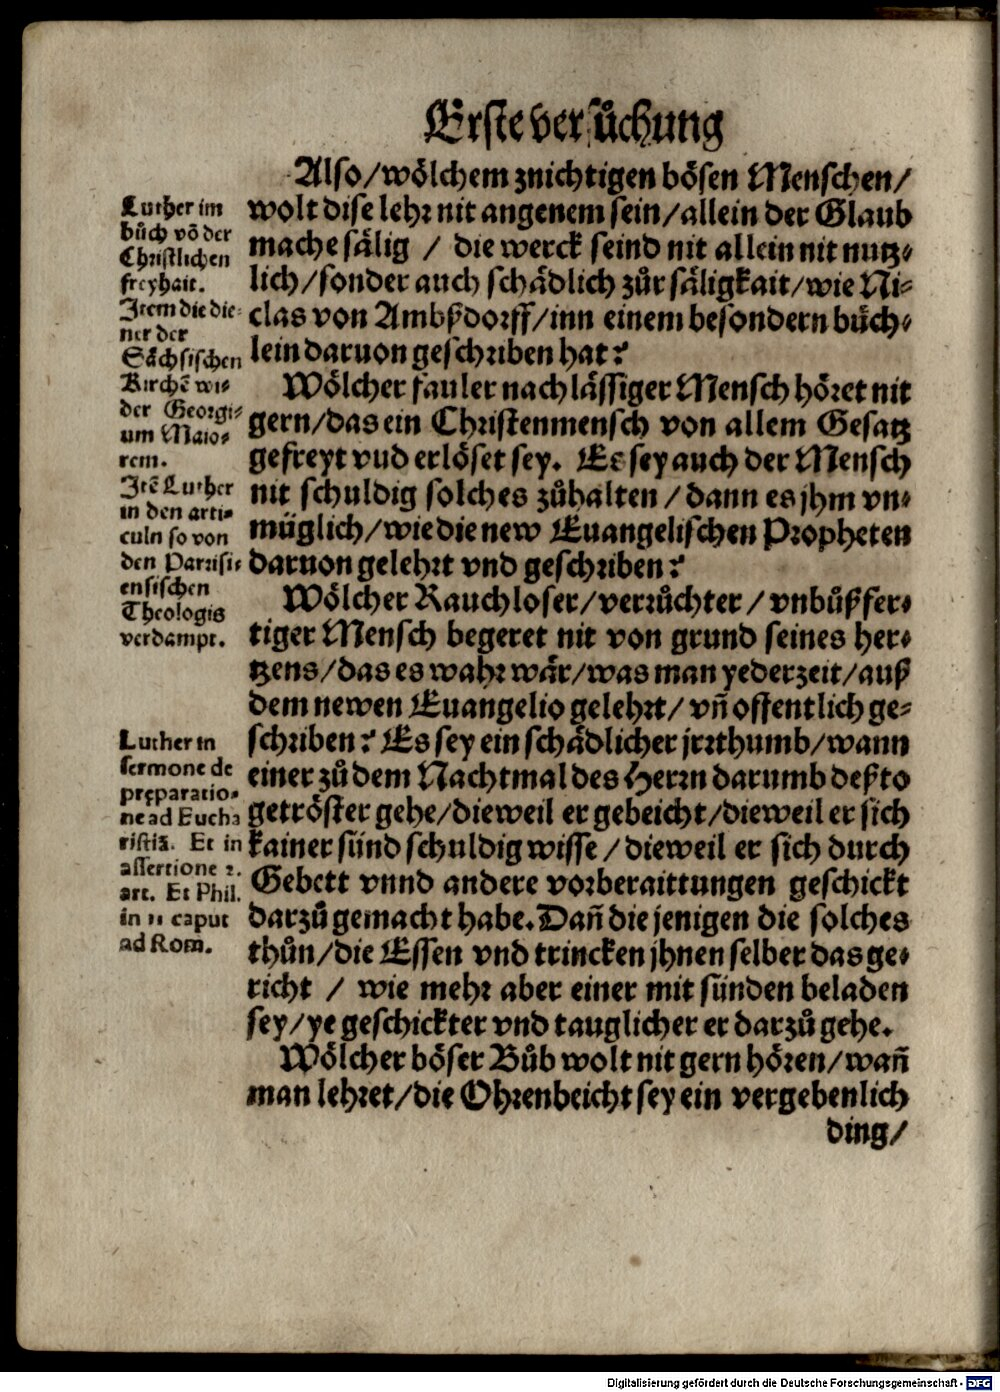 Erste versuͦchung
Also/wölchem znichtigen bösen Menschen/
wolt dise lehr nit angenem sein/allein der Glaub
mache sälig / die werck seind nit allein nit nutz⸗
lich/sonder auch schädlich zuͦr säligkait/wie Ni⸗
clas von Ambßdorff/inn einem besondern büch⸗
lein daruon geschriben hat?
Wölcher fauler nachlässiger Mensch höret nit
gern/das ein Christenmensch von allem Gesatz
gefreyt vnd erlöset sey. Es sey auch der Mensch
nit schuldig solches zuͦhalten / dann es jhm vn⸗
müglich/wie die new Euangelischen Propheten
daruon gelehrt vnd geschriben?
Wölcher Rauchloser/verruͦchter / vnbuͦßfer⸗
tiger Mensch begeret nit von grund seines her⸗
tzens/das es wahr wär/was man yederzeit/auß
dem newen Euangelio gelehrt/ vñ offentlich ge⸗
schriben? Es sey ein schädlicher jrrthumb/wann
einer zuͦ dem Nachtmal des Herrn darumb deßto
getröster gehe/dieweil er gebeicht/dieweil er sich
kainer sünd schuldig wisse / dieweil er sich durch
Gebett vnnd andere vorberaittungen geschickt
darzuͦ gemacht habe. Dañ die jenigen die solches
thuͦn/die Essen vnd trincken jhnen selber das ge⸗
richt / wie mehr aber einer mit sünden beladen
sey/ye geschickter vnd tauglicher er darzuͦ gehe.
Wölcher böser Buͦb wolt nit gern hören/wañ
man lehret/die Ohrenbeicht sey ein vergebenlich
ding/
Luther im
buͦch võ der
Christlichen
freyhait.
Item die die⸗
ner der
Sächsischen
Kirchẽ wi⸗
der Georgi⸗
um Maio⸗
rem.
Itẽ Luther
in den arti⸗
culn so von
den Parrisi⸗
ensischen
Theologis
verdampt.
Luther in
sermone de
pręparatio⸗
ne ad Eucha
ristiã. Et in
assertione 2.
art. Et Phil.
in 11 caput
ad Rom.
Digitalisierung gefördert durch die Deutsche Forschungsgemeinschaft - DFG